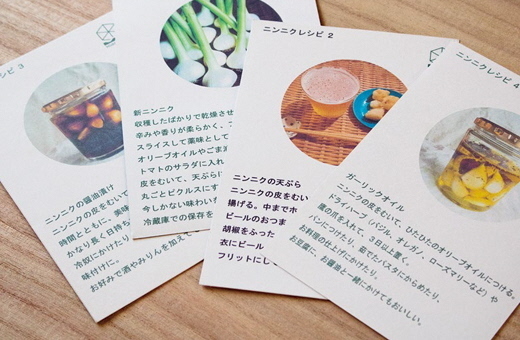 レシピ 3
ニンニクの醤油漬け
ニンニクの皮をむいて
時間とともに、美味
かなり長く日持ち
冷奴にかけたり
味付けに。
お好みで酒やみりんを加えて
新ニンニク
収穫したばかりで乾燥させ
辛みや香りが柔らかく、
スライスして薬味として
オリーブオイルやごま油
トマトのサラダに入れ
皮をむいて、天ぷらに
丸ごとピクルスにす
今しかない味わいを
冷蔵庫での保存を
ニンニクレシピ 2
ニンニクの天ぷら
ニンニクの皮をむい
揚げる。中までホ
ビールのおつま
胡椒をふった
衣にビール
フリットにし
ニンニクレシピ 4
ガーリックオイル
ニンニクの皮をむいて、ひたひたのオリーブオイルにつける。
ドライハーブ（バジル、オレガノ、ローズマリーなど）や
鷹の爪を入れて、3日以上置く。
パンにつけたり、茹でたパスタにからめたり、
お料理の仕上げにかけたり。
お豆腐に、お醤油と一緒にかけてもおいしい。